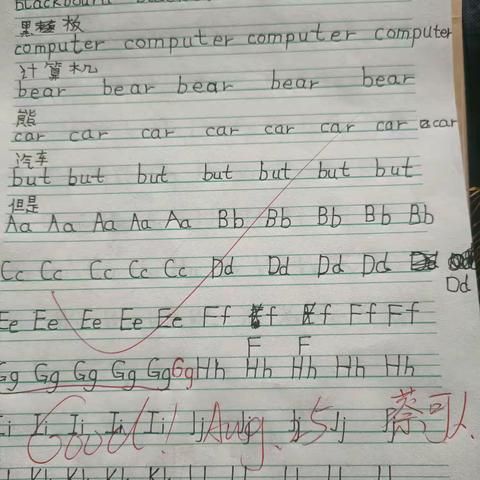 blackboard
黑板
computer computer computer computer
计算机
bear bear bear bear bear
熊
car car car car car car car car
汽车
but but but but but but but
但是
Aa Aa Aa Aa Aa Bb Bb Bb Bb Bb
Cc Cc Cc Cc Cc Dd Dd Dd Dd
Dd
Ee Ee Ee Ee Ee Ff f f Ff Ff
F F
Gg Gg Gg Gg Gg Gg Hh Hh Hh Hh Hh
Ii Ii Ii Ii Ii Jj Jj Jj Jj
Good! Aug. 5